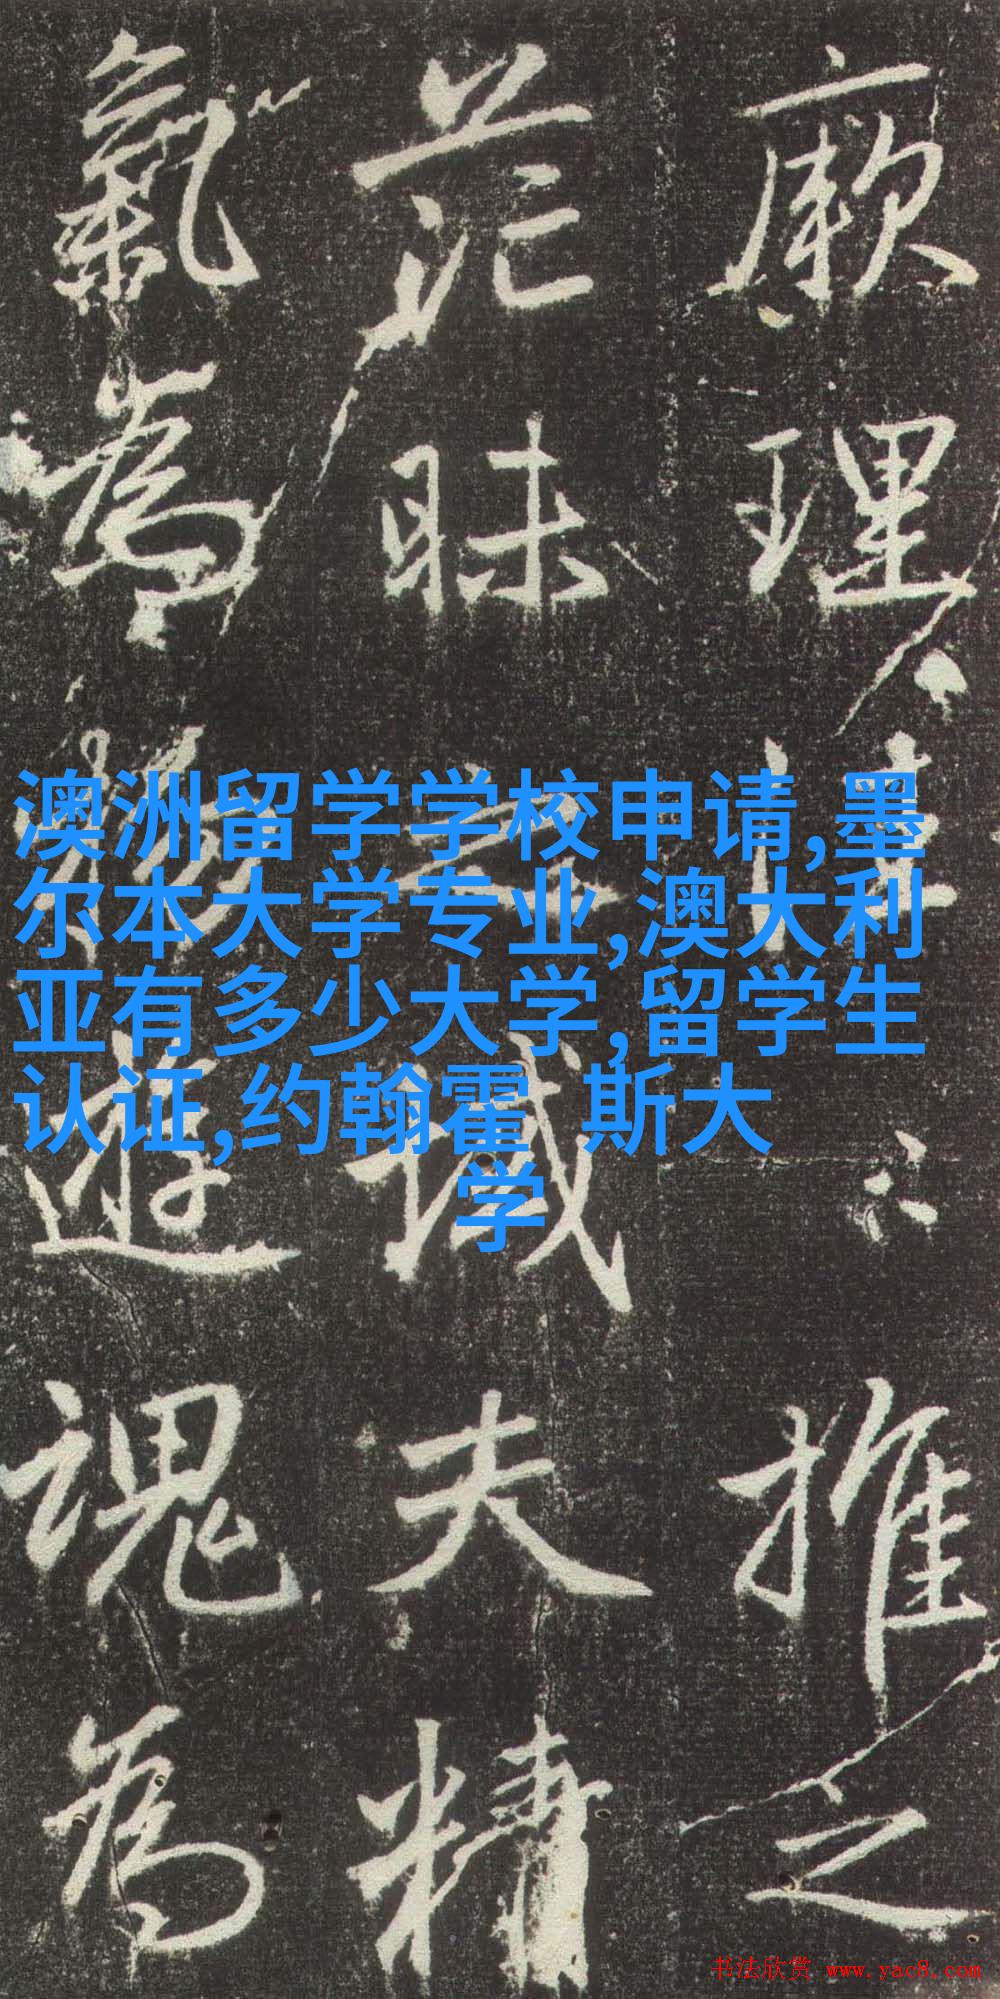 厥理
推之
茫昧
誠夫精
氣為
遊魂為
澳洲留学学校申请,墨
尔本大学专业,澳大利
亚有多少大学,留学生
认证,约翰霍 斯大
学
书法欣赏 www.yac8.com